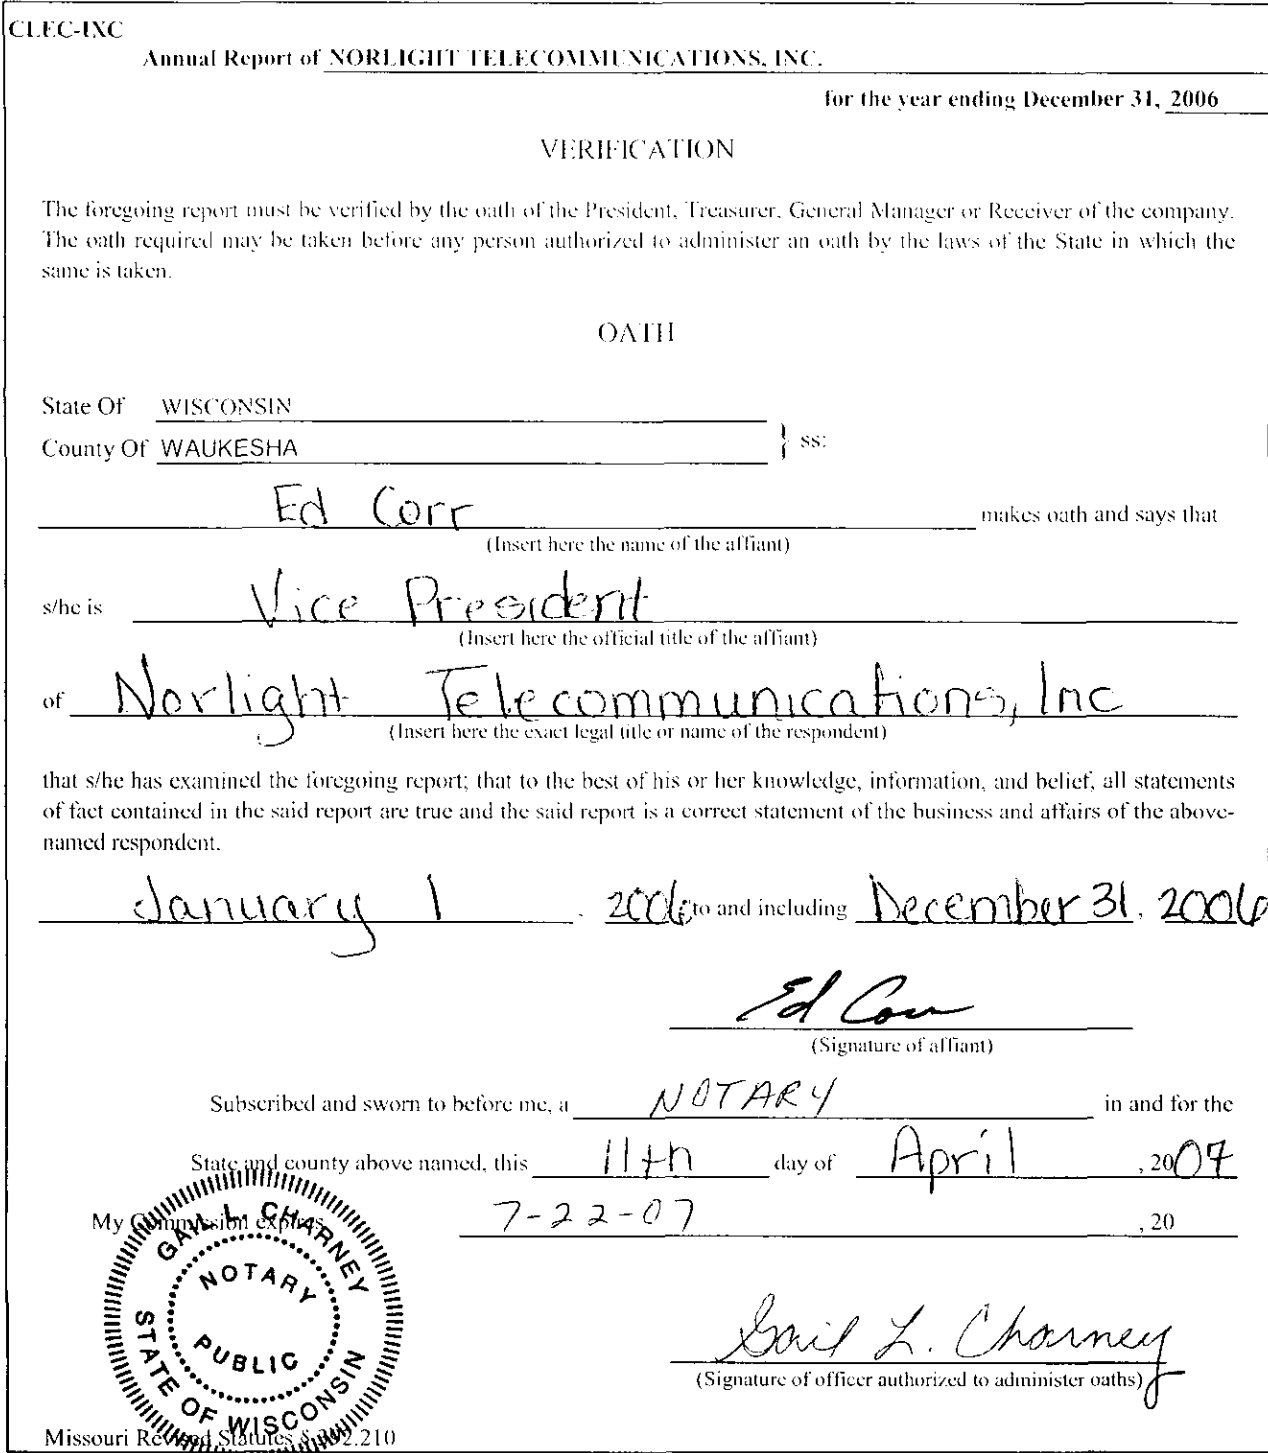 CLEC-IXC
Annual Report of NORLIGHT TELECOMMUNICATIONS, INC.
for the year ending December 31, 2006
VERIFICATION
The foregoing report must be verified by the oath of the President, Treasurer, General Manager or Receiver of the company.
The oath required may be taken before any person authorized to administer an oath by the laws of the State in which the
same is taken.
OATH
State Of WISCONSIN
County Of WAUKESHA } ss:
Ed Corr makes oath and says that
(Insert here the name of the affiant)
s/he is Vice President
(Insert here the official title of the affiant)
of Norlight Telecommunications, Inc
(Insert here the exact legal title or name of the respondent)
that s/he has examined the foregoing report; that to the best of his or her knowledge, information, and belief, all statements
of fact contained in the said report are true and the said report is a correct statement of the business and affairs of the above-
named respondent.
January 1, 2006 to and including December 31, 2006
Ed Corr
(Signature of affiant)
Subscribed and sworn to before me, a NOTARY in and for the
State and county above named, this 11th day of April, 2007
My Commission expires 7-22-07, 20
GAIL L. CHARNEY
NOTARY
PUBLIC
STATE OF WISCONSIN
Gail L. Charney
(Signature of officer authorized to administer oaths)
Missouri Revised Statutes § 392.210